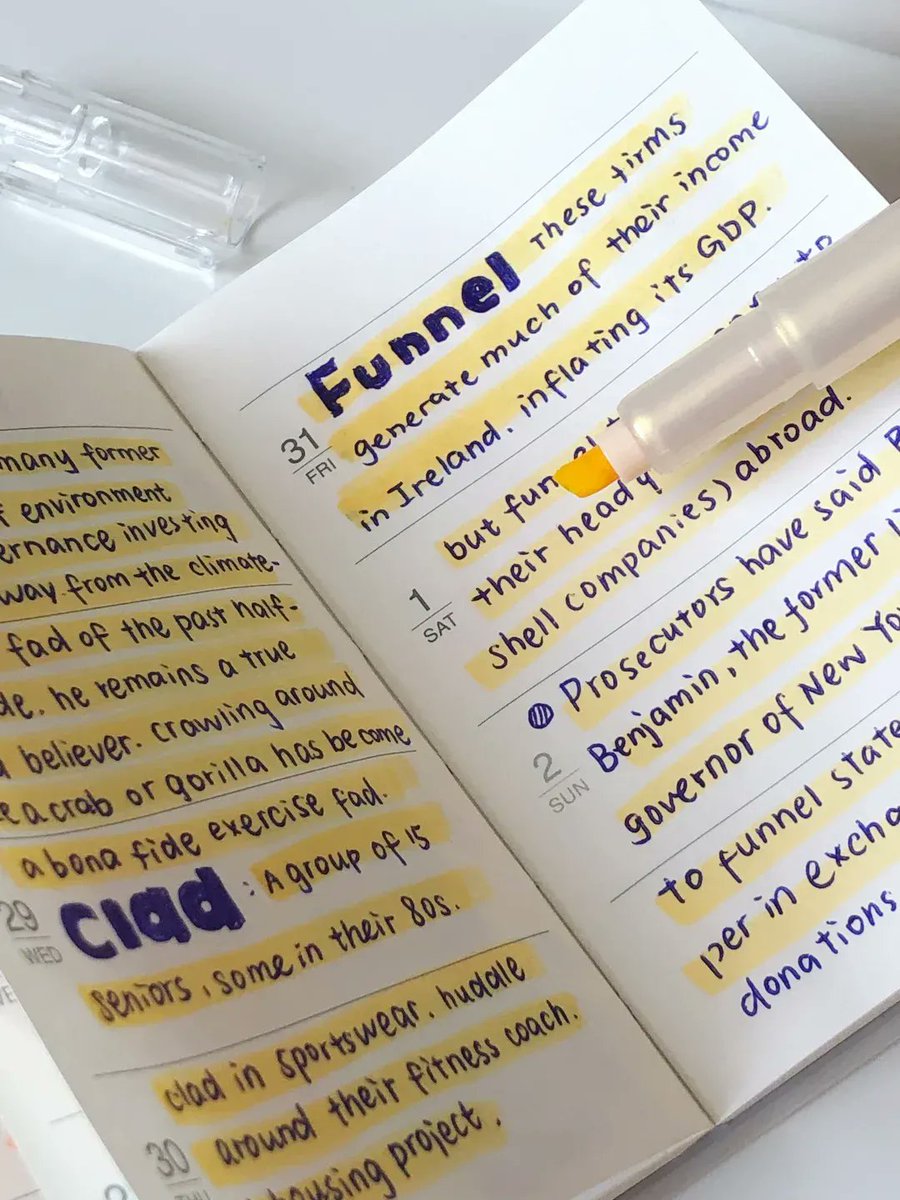 many former
environment
ernance investing
way from the climate-
fad of the past half-
he remains a true
believer. crawling around
a crab or gorilla has become
a bona fide exercise fad.
29
WED
clad : A group of 15
seniors, some in their 80s.
clad in sportswear, huddle
30
around their fitness coach.
housing project.
Funnel These firms
31
FRI
generate much of their income
in Ireland, inflating its GDP.
but funnel
their heady
1
SAT
shell companies) abroad.
Prosecutors have said
2
SUN
Benjamin, the former
governor of New
to funnel state
per in
donations